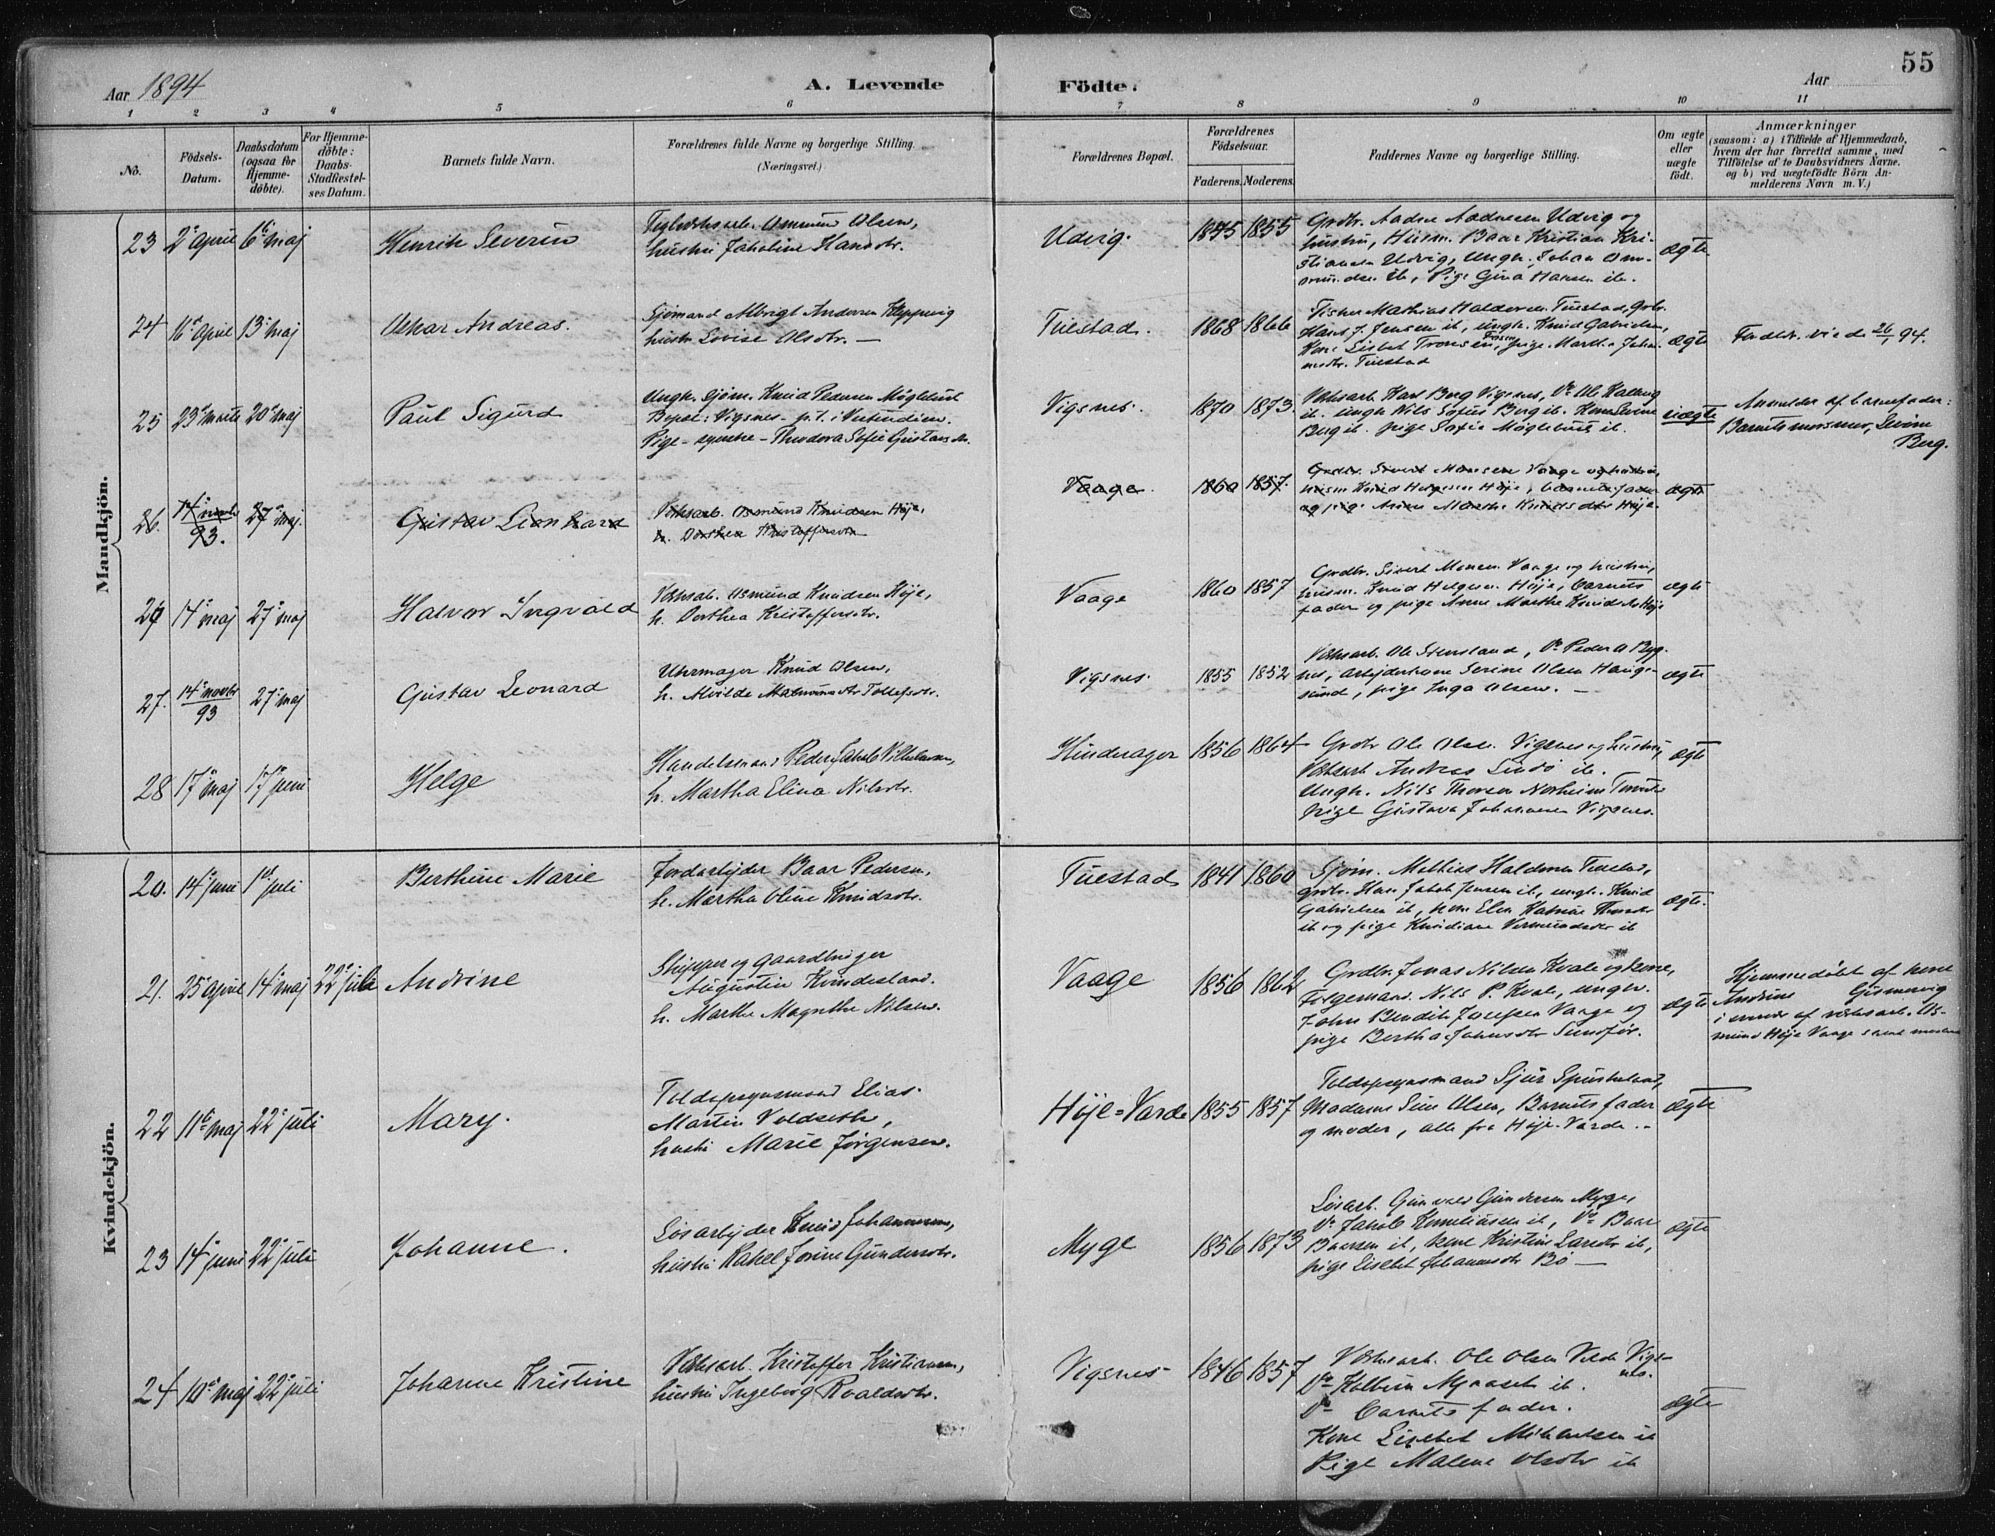 55
Aar 1894 A. Levende Födte. Aar
1 2 3 4 5 6 7 8 9 10 11
No. Födsels-Datum. Daabsdatum (ogsaa for Hjemmedöbte). For Hjemmedöbte: Daabs-Stadfæstelses Datum. Barnets fulde Navn. Forældrenes fulde Navne og borgerlige Stilling. (Næringsvei.) Forældrenes Bopæl. Forældrenes Födselsaar. Faderens. Moderens. Faddernes Navne og borgerlige Stilling. Om ægte eller uægte födt. Anmærkninger (saasom: a) i Tilfælde af Hjemmedaab, hvem der har forrettet samme, med Tilföielse af to Daabsvidners Navne, og b) ved uægtefödte Börn Anmelderens Navn m. V.)
Mandkjön.
23 2 april 6 maj Henrik Severin
Olsen,
hustru Jakobine Hansdtr.
Udvig. 1845 1855
Grdbr. Aadne Aadnesen Udvig og
hustru, Husm. Baar Kristian Kri-
stiansen Udvig, Ungk. Johan Om-
mundsen ib, Pige Gina Hansen ib.
ægte
24 16 april 13 maj Oskar Andreas.
Sjømand Albrigt Andersen
hustr. Lovise Olsdtr. —
Tuestad. 1868 1866
Fisker Mathias Haldorsen Tuestad, Grbr.
Hans J. Jensen ib, ungk. Knud Gabrielsen,
Kone Lisbet Tronsen, pige Marth. Johan-
nesdtr. Tuestad
ægte
Foreldr. viede 26/1 94.
25 23 marts 20 maj Paul Sigurd
Ungk. Sjøm. Knud Pedersen Møglebust
Bopæl: Vigsnes - p.t. i Vestindien.
Pige - syerske - Theodora Sofie Gustavsdtr.
Vigsnes. 1870 1873.
Verksarb. Karl Berg Vigsnes, Do Ole
ib. ungk Nils Sofus Berg ib. Kone Sevine
Berg ib. pige Sofie Møglebust ib.
uægte
Anmelder af barnefader:
Barnets mormor, Sevine
Berg.
26. 14 novbr 93. 27 maj. Gustav Leonhard
Verksarb. Osmund Knudsen Høje,
h. Dorthea Kristoffersdtr.
Vaage. 1860 1857.
Grdbr. Sivert Monsen Vaage og hustru,
husm Knud Helgesen Høje, barnets fader
og pige Anne Marthe Knudsdtr Høje.
ægte
26 14 maj 27 maj Halvor Ingvald
Verksarb. Osmund Knudsen Høje,
h. Dorthea Kristoffersdtr.
Vaage 1860 1857
Grdbr. Sivert Monsen Vaage og hustru,
husm. Knud Helgesen Høje, barnets
fader og pige Anne Marthe Knudsdtr Høje
ægte
27. 14 novbr 93 27 maj Gustav Leonard
Uhrmager Knud Olsen,
h. Alvilde Tollefsdtr.
Vigsnes. 1855 1852
Verksarb. Ole Stensland, Do Peder A Byg-
nes, arbejderkone Serine Olsen Hauge-
sund, pige Inga Olsen. —
ægte
28 17 maj 17 juni Helge
Handelsmand Peder Jakob Vilhelmsen,
h. Martha Elina Nilsdtr.
Hinderager 1856 1864
Grdbr Ole Olsen Vigsnes og hustru,
Verksarb Andreas Lindø ib.
Ungk. Nils Thorsen Norheim
pige Gustava Johannesen Vigsnes.
ægte
Kvindekjön.
20. 14 juni 1 juli Berthine Marie
Jordarbejder Baar Pedersen,
h. Martha Oline Knudsdtr.
Tuestad 1841 1860
Sjøm. Mathias Haldorsen Tuestad,
grdbr. Hans Jakob Jensen ib, ungk. Knud
Gabrielsen ib, kone Elen
ib og pige Knudiane ib
ægte.
21. 25 april 14 maj 22 juli Andrine
Skipper og gaardbruger
Augustin Kvindesland.
h. Marthe Magnthe Nilsen.
Vaage 1856 1862
Grdbr. Jonas Nilsen Kvale og kone,
Følgemand. Nils P. Kvale, ungkr.
John Bendik Josefsen Vaage og
pige Bertha Johnsdtr Sundfør.
ægte
Hjemmedøbt af kone
Andrine Gismervig
i nærvær af verksarb. Os-
mund Høje Vaage samt moderen
22 11 maj 22 juli Mary.
Toldopsynsmand Elias
Martin Voldseth,
hustru Marie Jørgensen.
Høje-Varde 1855 1857
Toldopsynsmand Sjur
Madame Sine Olsen, Barnets fader
og moder, alle fra Høje-Varde.
ægte
23 14 juni 22 juli Johanne.
Løsarbejder Knud Johannessen,
hustru Rakel Jorine Gundersdtr.
Myge 1856 1873
Løsarb. Gunvald Gundersen Myge,
Do Jakob Korneliusen ib, Do Baar
Baarsen ib, kone Kristine Larsdtr ib,
pige Lisebet Johannesdtr Bø —
ægte
24 10 maj 22 juli Johanne Kristine
Verksarb. Kristoffer Kristiansen,
hustru Ingeborg Roaldsdtr.
Vigsnes 1846 1857
Verksarb. Ole Olsen Velde Vigs-
nes.
Do Kolbein Myraset ib.
Do barnets fader.
Kone Lisebet Mikaelsen ib
Pige Malene Olsdtr ib
ægte